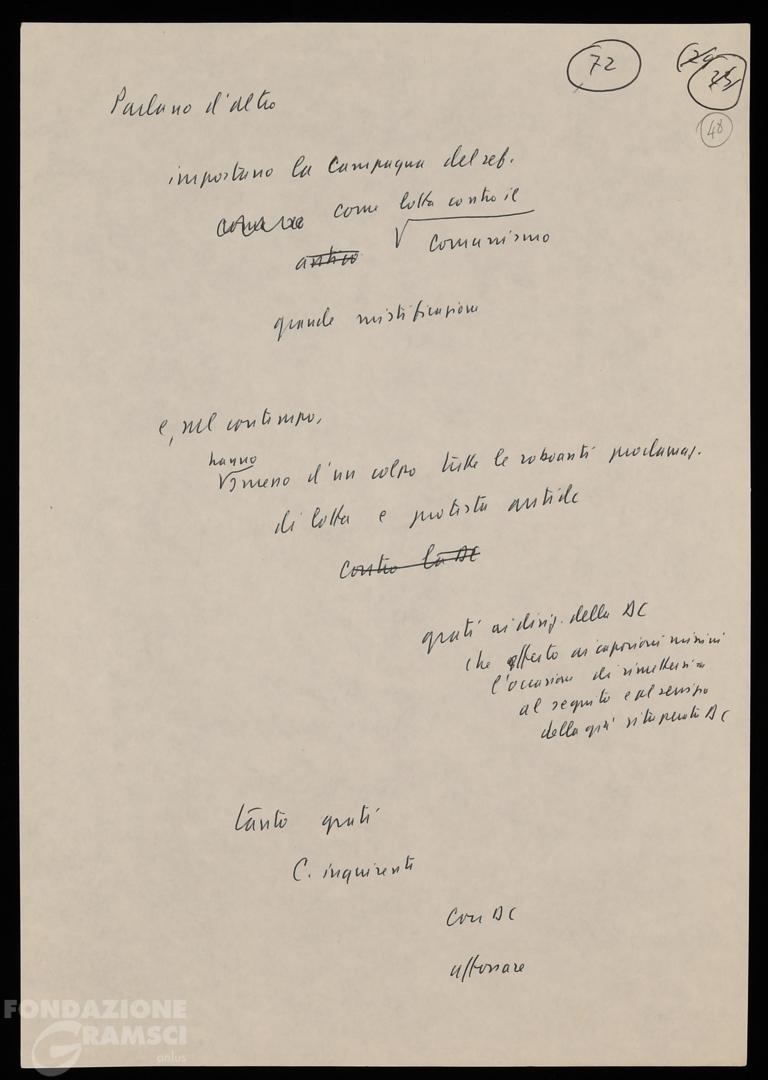 72
48
Parlano d'altro
impostano la Campagna del ref.
come lotta contro il
antico
comunismo
grande mistificazione
e, nel contempo,
hanno
meno d'un colpo tutte le roboanti proclamaz.
di lotta e protesta antidc
contro la DC
grati ai dirig. della DC
che offerto ai caporioni missini
l'occasione di rimettersi
al seguito e al servizio
della già vituperata DC
tanto grati
C. inquirente
con DC
affossare
FONDAZIONE
GRAMSCI
onlus